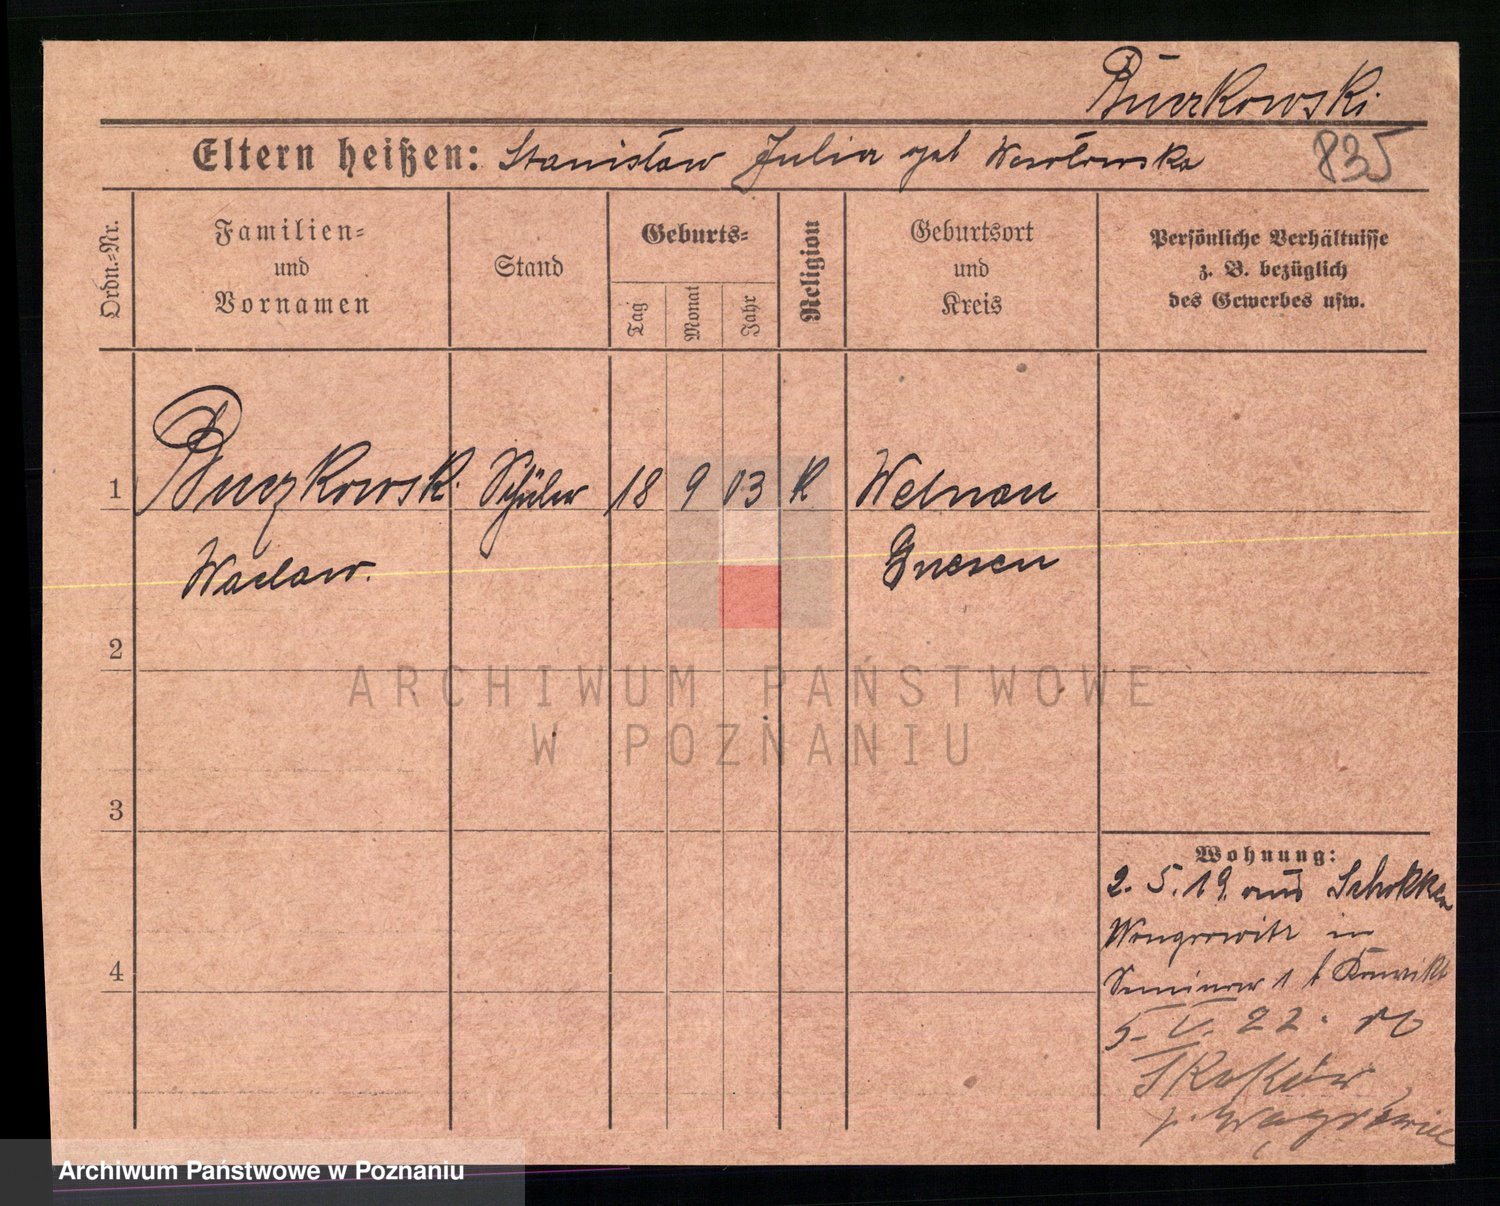 Buczkowski
Eltern heißen: Stanisław Julia geb Wesołowska
835
Ordn.-Nr.
Familien-
und
Vornamen
Stand
Geburts-
Tag
Monat
Jahr
Religion
Geburtsort
und
Kreis
Persönliche Verhältnisse
z. B. bezüglich
des Gewerbes usw.
1
Buczkowski
Schüler
18
9
03
K
Welnau
Waclaw.
Gnesen
2
ARCHIWUM PAŃSTWOWE
W POZNANIU
3
Wohnung:
2. 5. 19. aus Schokken
Wongrowitz in
4
Seminar Konvikt
5. V. 22.
Skoków
p. Wągrowiec
Archiwum Państwowe w Poznaniu